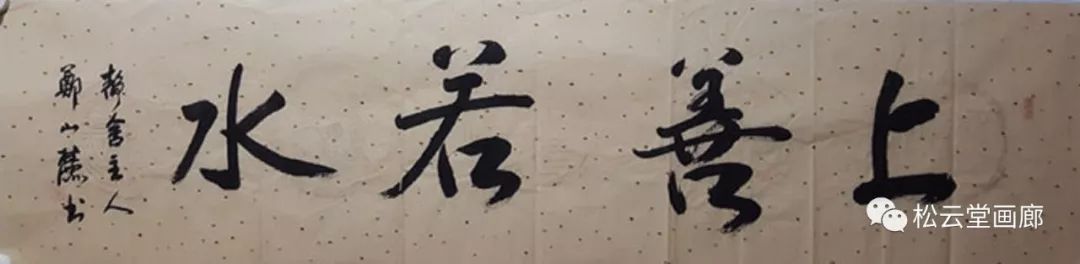 上善若水
静舍主人
郑山麓书
松云堂画廊